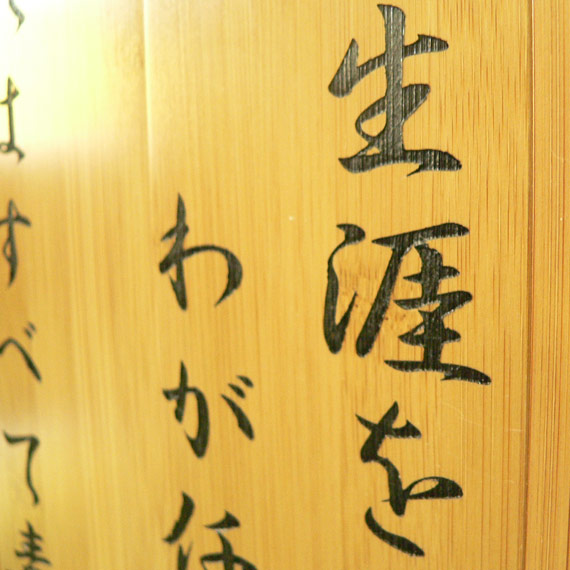 生涯を
わが
はすべて